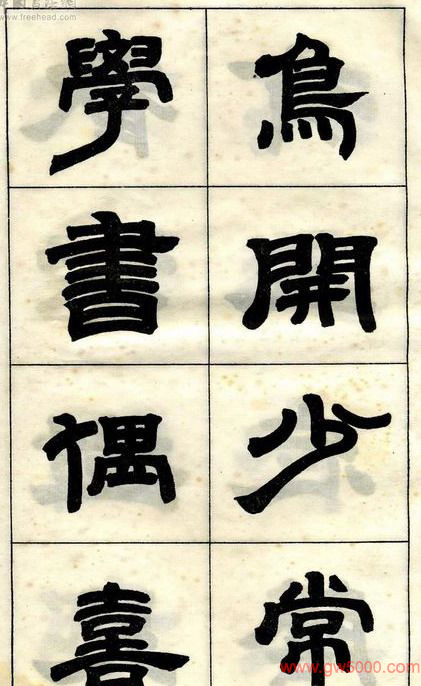 鳥開少常
學書偶喜
www.freehead.com
www.gw5000.com